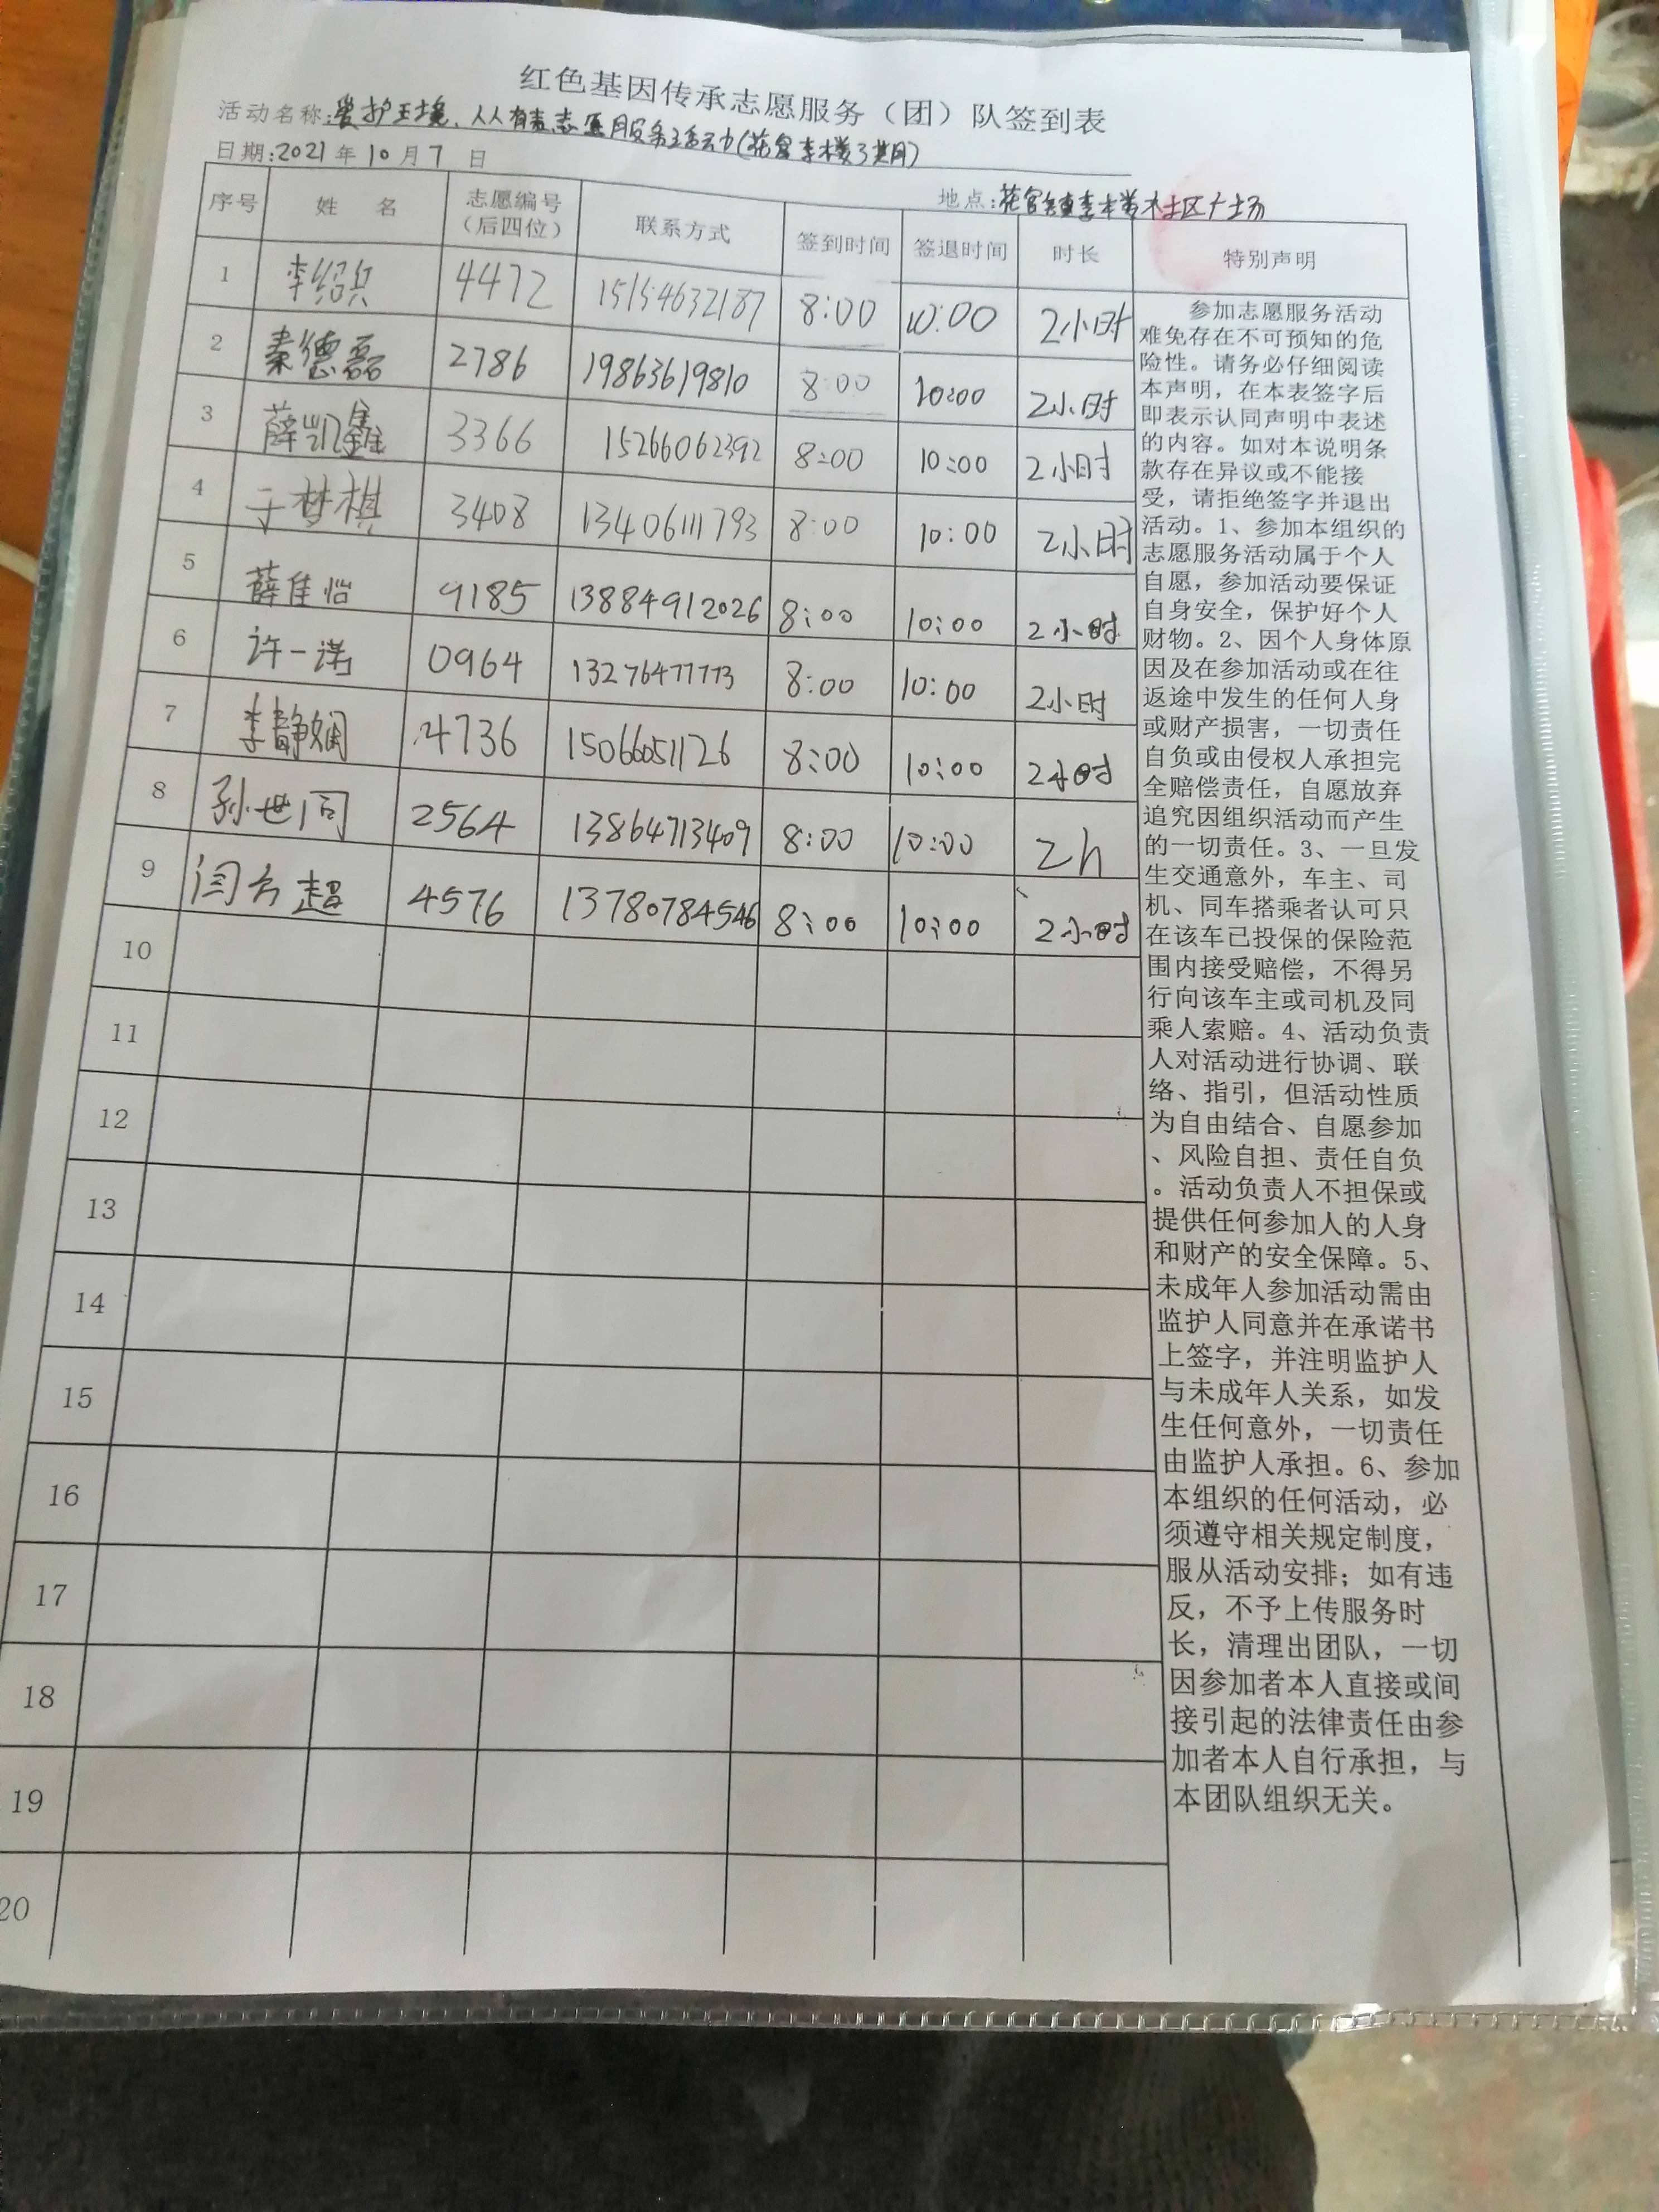 红色基因传承志愿服务（团）队签到表
活动名称:爱护环境、人人有责志愿服务活动(花官李楼
日期:2021年10月7日
地点:花官镇李楼社区广场
序号 姓 名 志愿编号（后四位） 联系方式 签到时间 签退时间 时长 特别声明
1 李绍兵 4472 15154632187 8:00 10:00 2小时
2 秦德磊 2786 19863619810 8:00 10:00 2小时
3 薛凯鑫 3366 15266062392 8:00 10:00 2小时
4 于梦棋 3408 13406111793 8:00 10:00 2小时
5 薛佳怡 9185 13884912026 8:00 10:00 2小时
6 许一诺 0964 13276477773 8:00 10:00 2小时
7 李静娴 4736 15066051126 8:00 10:00 2小时
8 孙世同 2564 13864713409 8:00 10:00 2h
9 闫方超 4576 13780784546 8:00 10:00 2小时
10
11
12
13
14
15
16
17
18
19
20
参加志愿服务活动
难免存在不可预知的危
险性。请务必仔细阅读
本声明，在本表签字后
即表示认同声明中表述
的内容。如对本说明条
款存在异议或不能接
受，请拒绝签字并退出
活动。1、参加本组织的
志愿服务活动属于个人
自愿，参加活动要保证
自身安全，保护好个人
财物。2、因个人身体原
因及在参加活动或在往
返途中发生的任何人身
或财产损害，一切责任
自负或由侵权人承担完
全赔偿责任，自愿放弃
追究因组织活动而产生
的一切责任。3、一旦发
生交通意外，车主、司
机、同车搭乘者认可只
在该车已投保的保险范
围内接受赔偿，不得另
行向该车主或司机及同
乘人索赔。4、活动负责
人对活动进行协调、联
络、指引，但活动性质
为自由结合、自愿参加
、风险自担、责任自负
。活动负责人不担保或
提供任何参加人的人身
和财产的安全保障。5、
未成年人参加活动需由
监护人同意并在承诺书
上签字，并注明监护人
与未成年人关系，如发
生任何意外，一切责任
由监护人承担。6、参加
本组织的任何活动，必
须遵守相关规定制度，
服从活动安排；如有违
反，不予上传服务时
长，清理出团队，一切
因参加者本人直接或间
接引起的法律责任由参
加者本人自行承担，与
本团队组织无关。